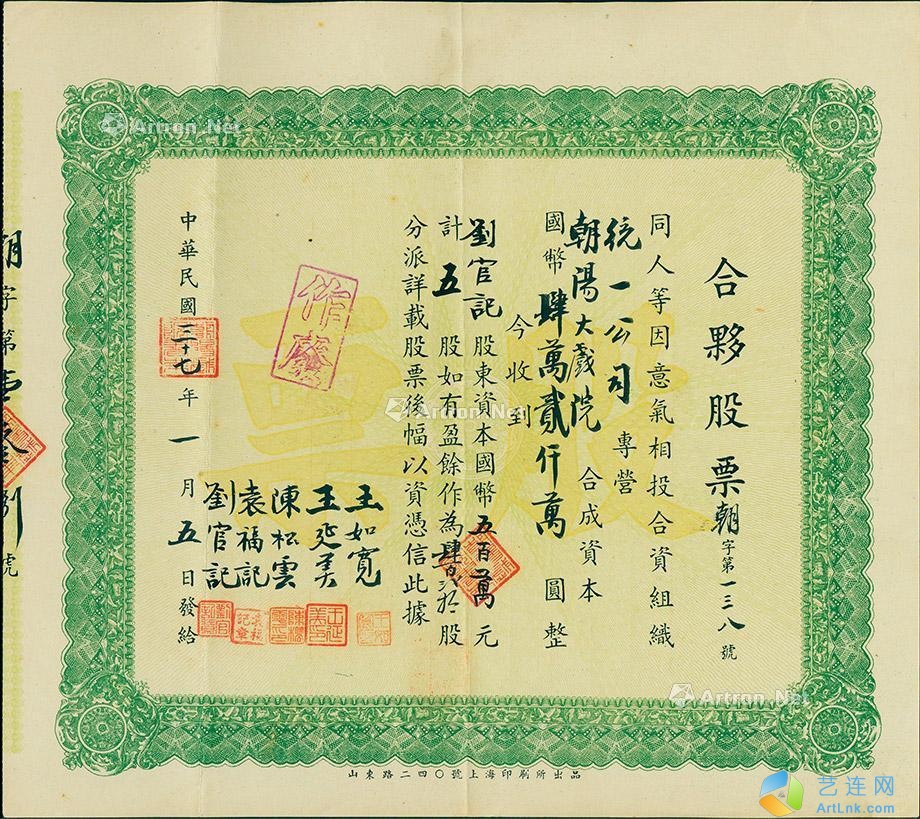 合夥股票朝字第一三八號
同人等因意氣相投合資組織
統一公司專營
朝陽大戲院合成資本
國幣肆萬貳仟萬圓整
今收到
劉官記股東資本國幣五百萬元
計五股如有盈餘作為肆百貳拾股
分派詳載股票後幅以資憑信此據
作廢
王如寬
王延美
陳松雲
袁福記
劉官記
中華民國三十七年一月五日發給
朝字第壹叁捌號
山東路二四〇號上海印刷所出品
Artron.Net
Artron.Net
Artron.Net
艺连网
ArtLnk.com